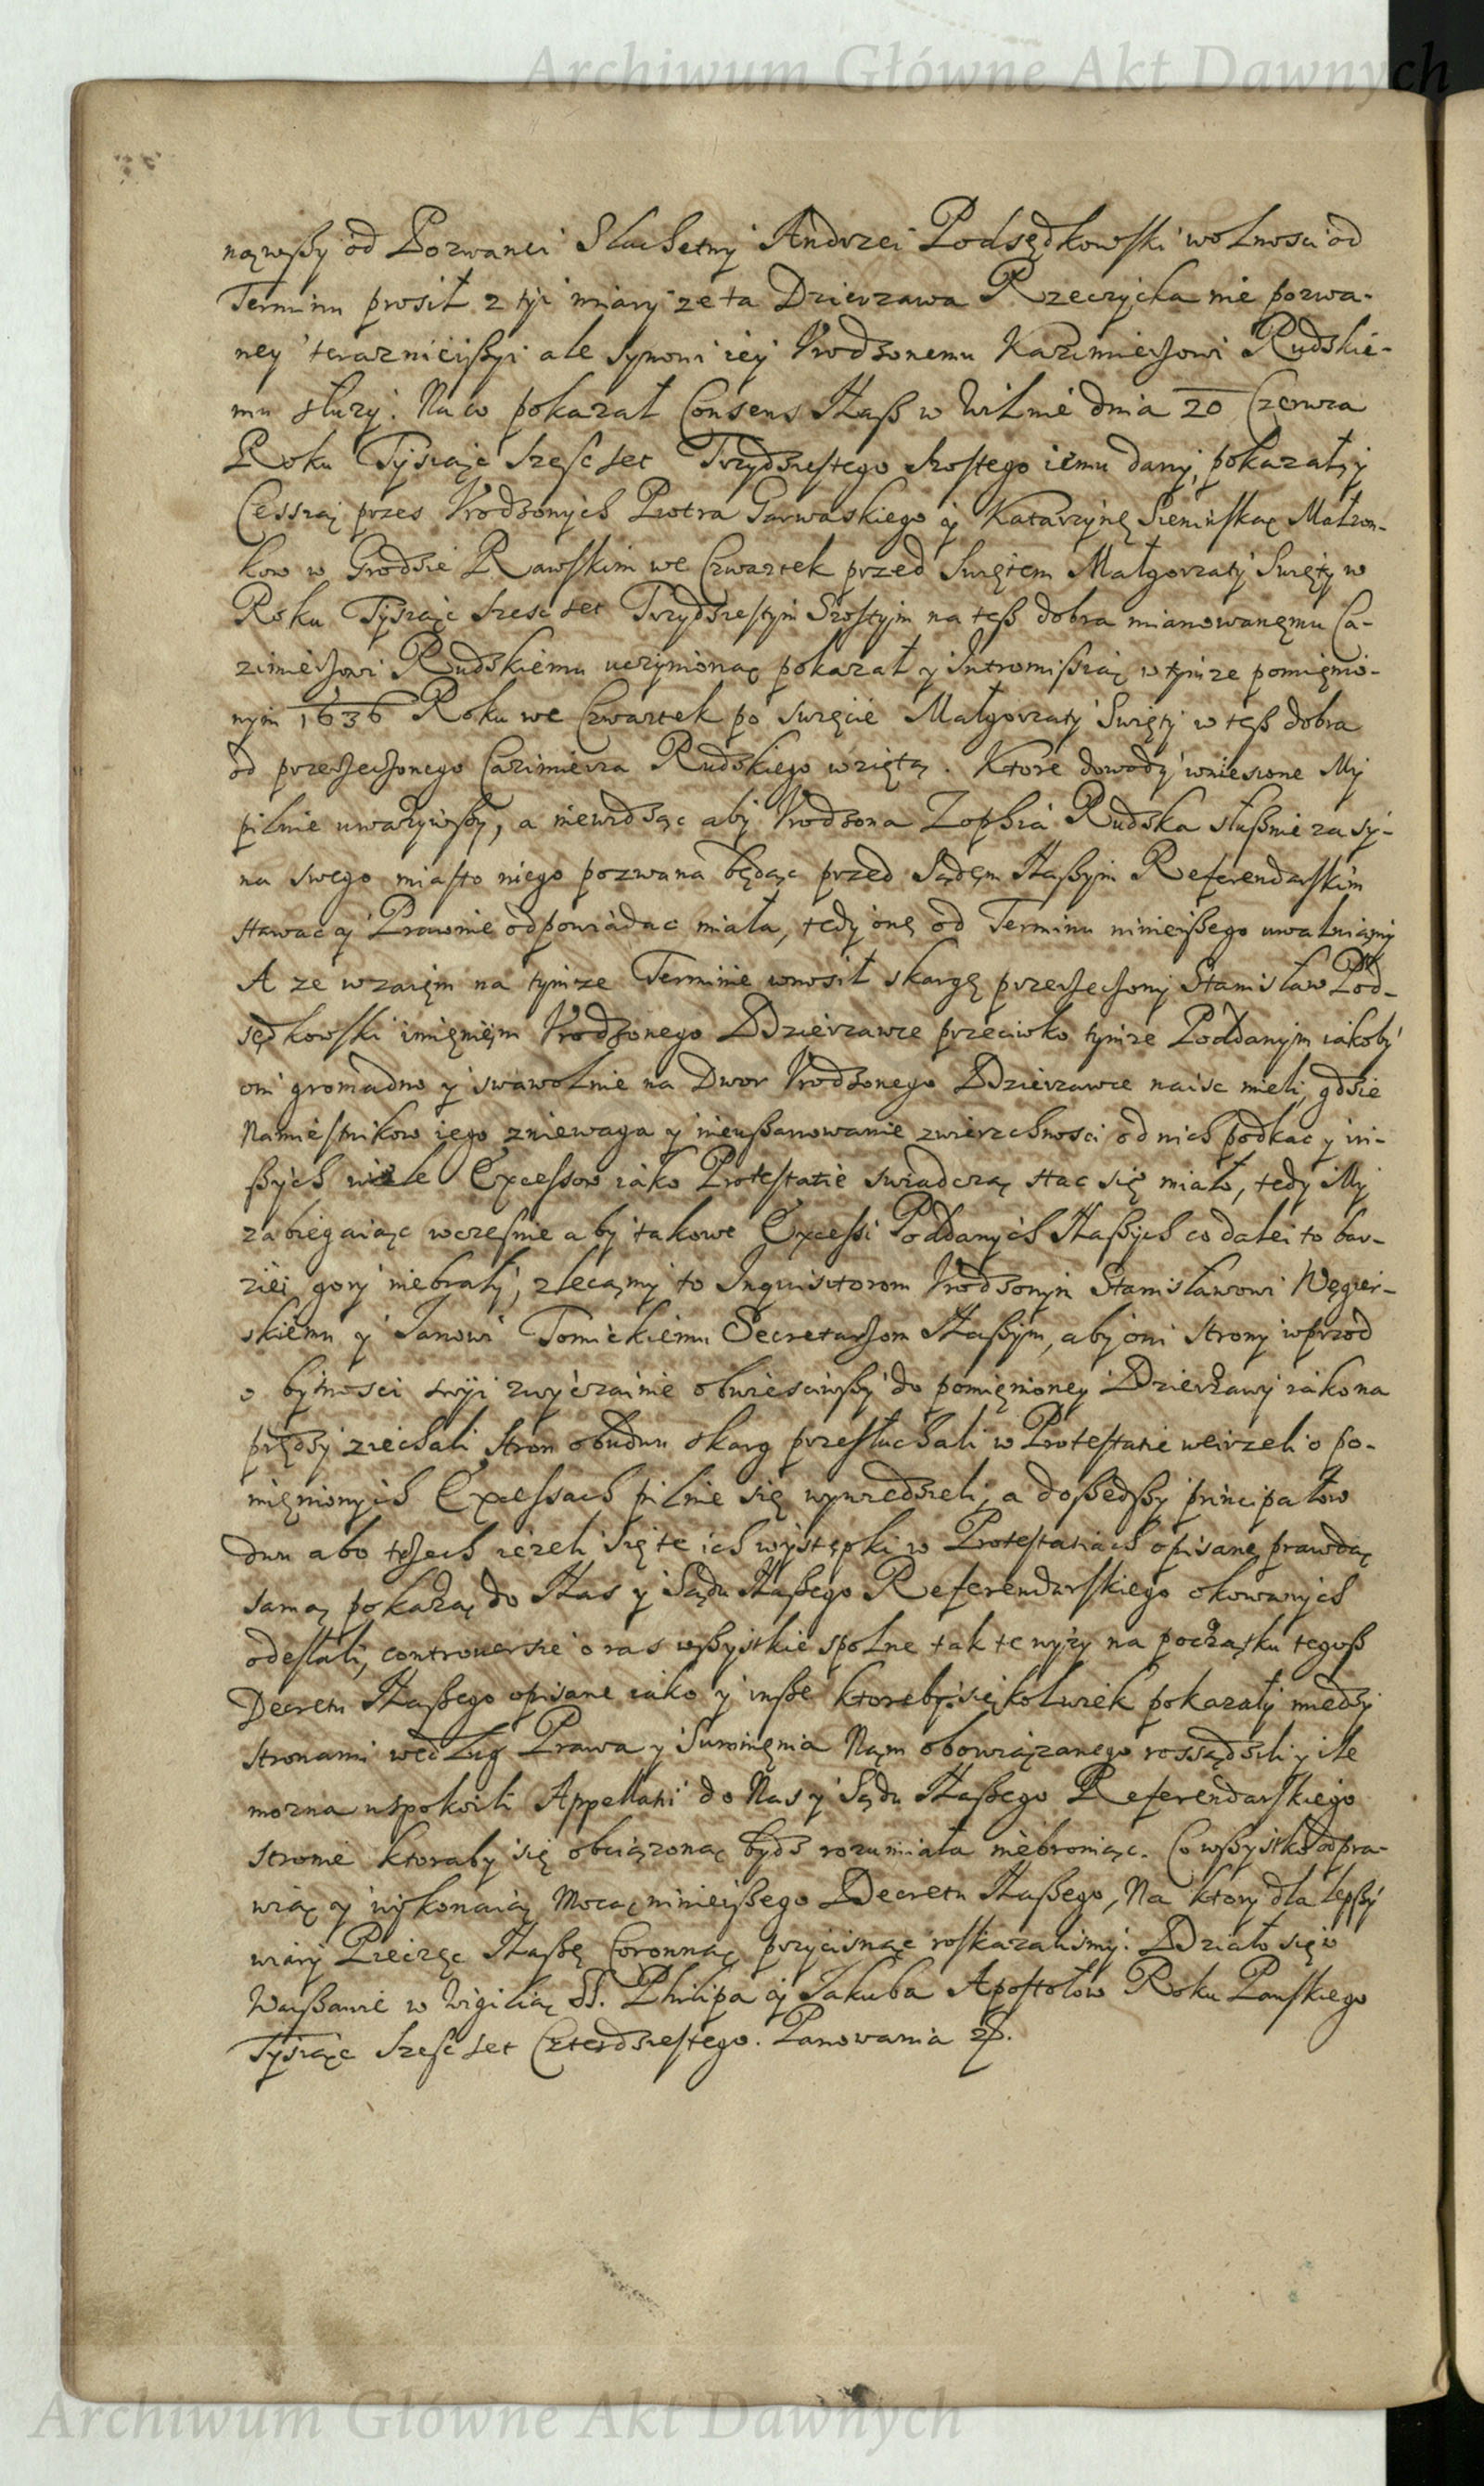 Archiwum Główne Akt Dawnych
nąwszy od Pozwanei Slachetny Andrzei Podsędkowski wolnosci od
Terminu prosił z tyi miary ze ta Dzierzawa Rzeczycka nie pozwa-
ney terazniejszyi ale synowi iey Urodzonemu Kazimierzowi Rudskie-
mu słuzy. Na co pokazał Consens Nasz w Wilnie dnia 20 Czerwca
Roku Tysiąc szesc set Trzydziestego szostego iemu dany, pokazał y
Cessią przes Urodzonych Piotra Garwaskiego y Katarzynę Sieninską Małzon-
kow w Grodzie Rawskim we Czwartek przed Swiętem Małgorzaty Swięty w
Roku Tysiąc szesc set Trzydziestym Szostym na tesz dobra mianowanęmu Ca-
zimierzowi Rudskiemu uczynioną pokazał y Intromissią w tymze pomięnio-
nym 1636 Roku we Czwartek po swięcie Małgorzaty Swięty w tesz dobra
od przerzeczonego Cazimierza Rudskiego wziętą. Ktore dowody wniesione My
pilnie uwazywszy, a niewidząc aby Urodzona Zophia Rudska słusznie za sy-
na swego miasto niego pozwana będąc przed Sądęm Naszym Referendarskim
stawac y Prawnie odpowiadac miała, tedy onę od Terminu ninieiszego uwalniamy
A ze wzaięm na tymze Terminie wnosił skargę przerzeczony Stanisław Pod-
sędkowski imięnięm Urodzonego Dzierzawce przeciwko tymze Poddanym iakoby
oni gromadno y swawolnie na Dwor Urodzonego Dzierzawce naisc mieli, gdzie
Namiesnikow iego zniewaga y nieuszanowanie zwierzchnosci od nich podkac y in-
szych wiele Excessow iako Protestatie swiadczą stac się miało, tedy My
zabiegaiąc wczesnie aby takowe Excessi Poddanych Naszych co dalei to bar-
ziei gory niebrały, zlecamy to Inquisitorom Urodzonym Stanisławowi Węgier-
skiemu y Janowi Tomickiemu Secretarzom Naszym, aby oni strony wprzod
o bytnosci swyi zwyczainie obwiesciwszy do pomięnioney Dzierzawy iako na
prędzy ziechali stron obudwu skarg przesłuchali w Protestatie weirzeli o po-
mięnionych Excessach pilnie się wywiedzieli, a doszedszy principałow
dwu abo trzech iezeli się te ich występki w Protestatiach opisane prawdą
samą pokazą do Nas y Sądu Naszego Referendarskiego okowanych
odesłali, controuersie oras wszystkie spolne tak te wyzy na początku tegosz
Decretu Naszego opisane iako y insze ktoreby się kolwiek pokazały miedzy
stronami według Prawa y Sumnięnia Nąm obowiązanego rossądzili y ile
mozna uspokoili Appellatii do Nas y Sądu Naszego Referendarskiego
stronie ktoraby się obciązoną bydz rozumiała niebroniąc. Co wszystko odpra-
wią y wykonaią mocą ninieiszego Decretu Naszego, Na ktory dla lepszy
wiary Pieczęc Naszę Coronną przycisnąc roskazalismy. Działo się w
Warszawie w Wigilią SS. Philipa y Jakuba Apostołow Roku Panskiego
Tysiąc szesc set Czterdziestego. Panowania
Archiwum Główne Akt Dawnych